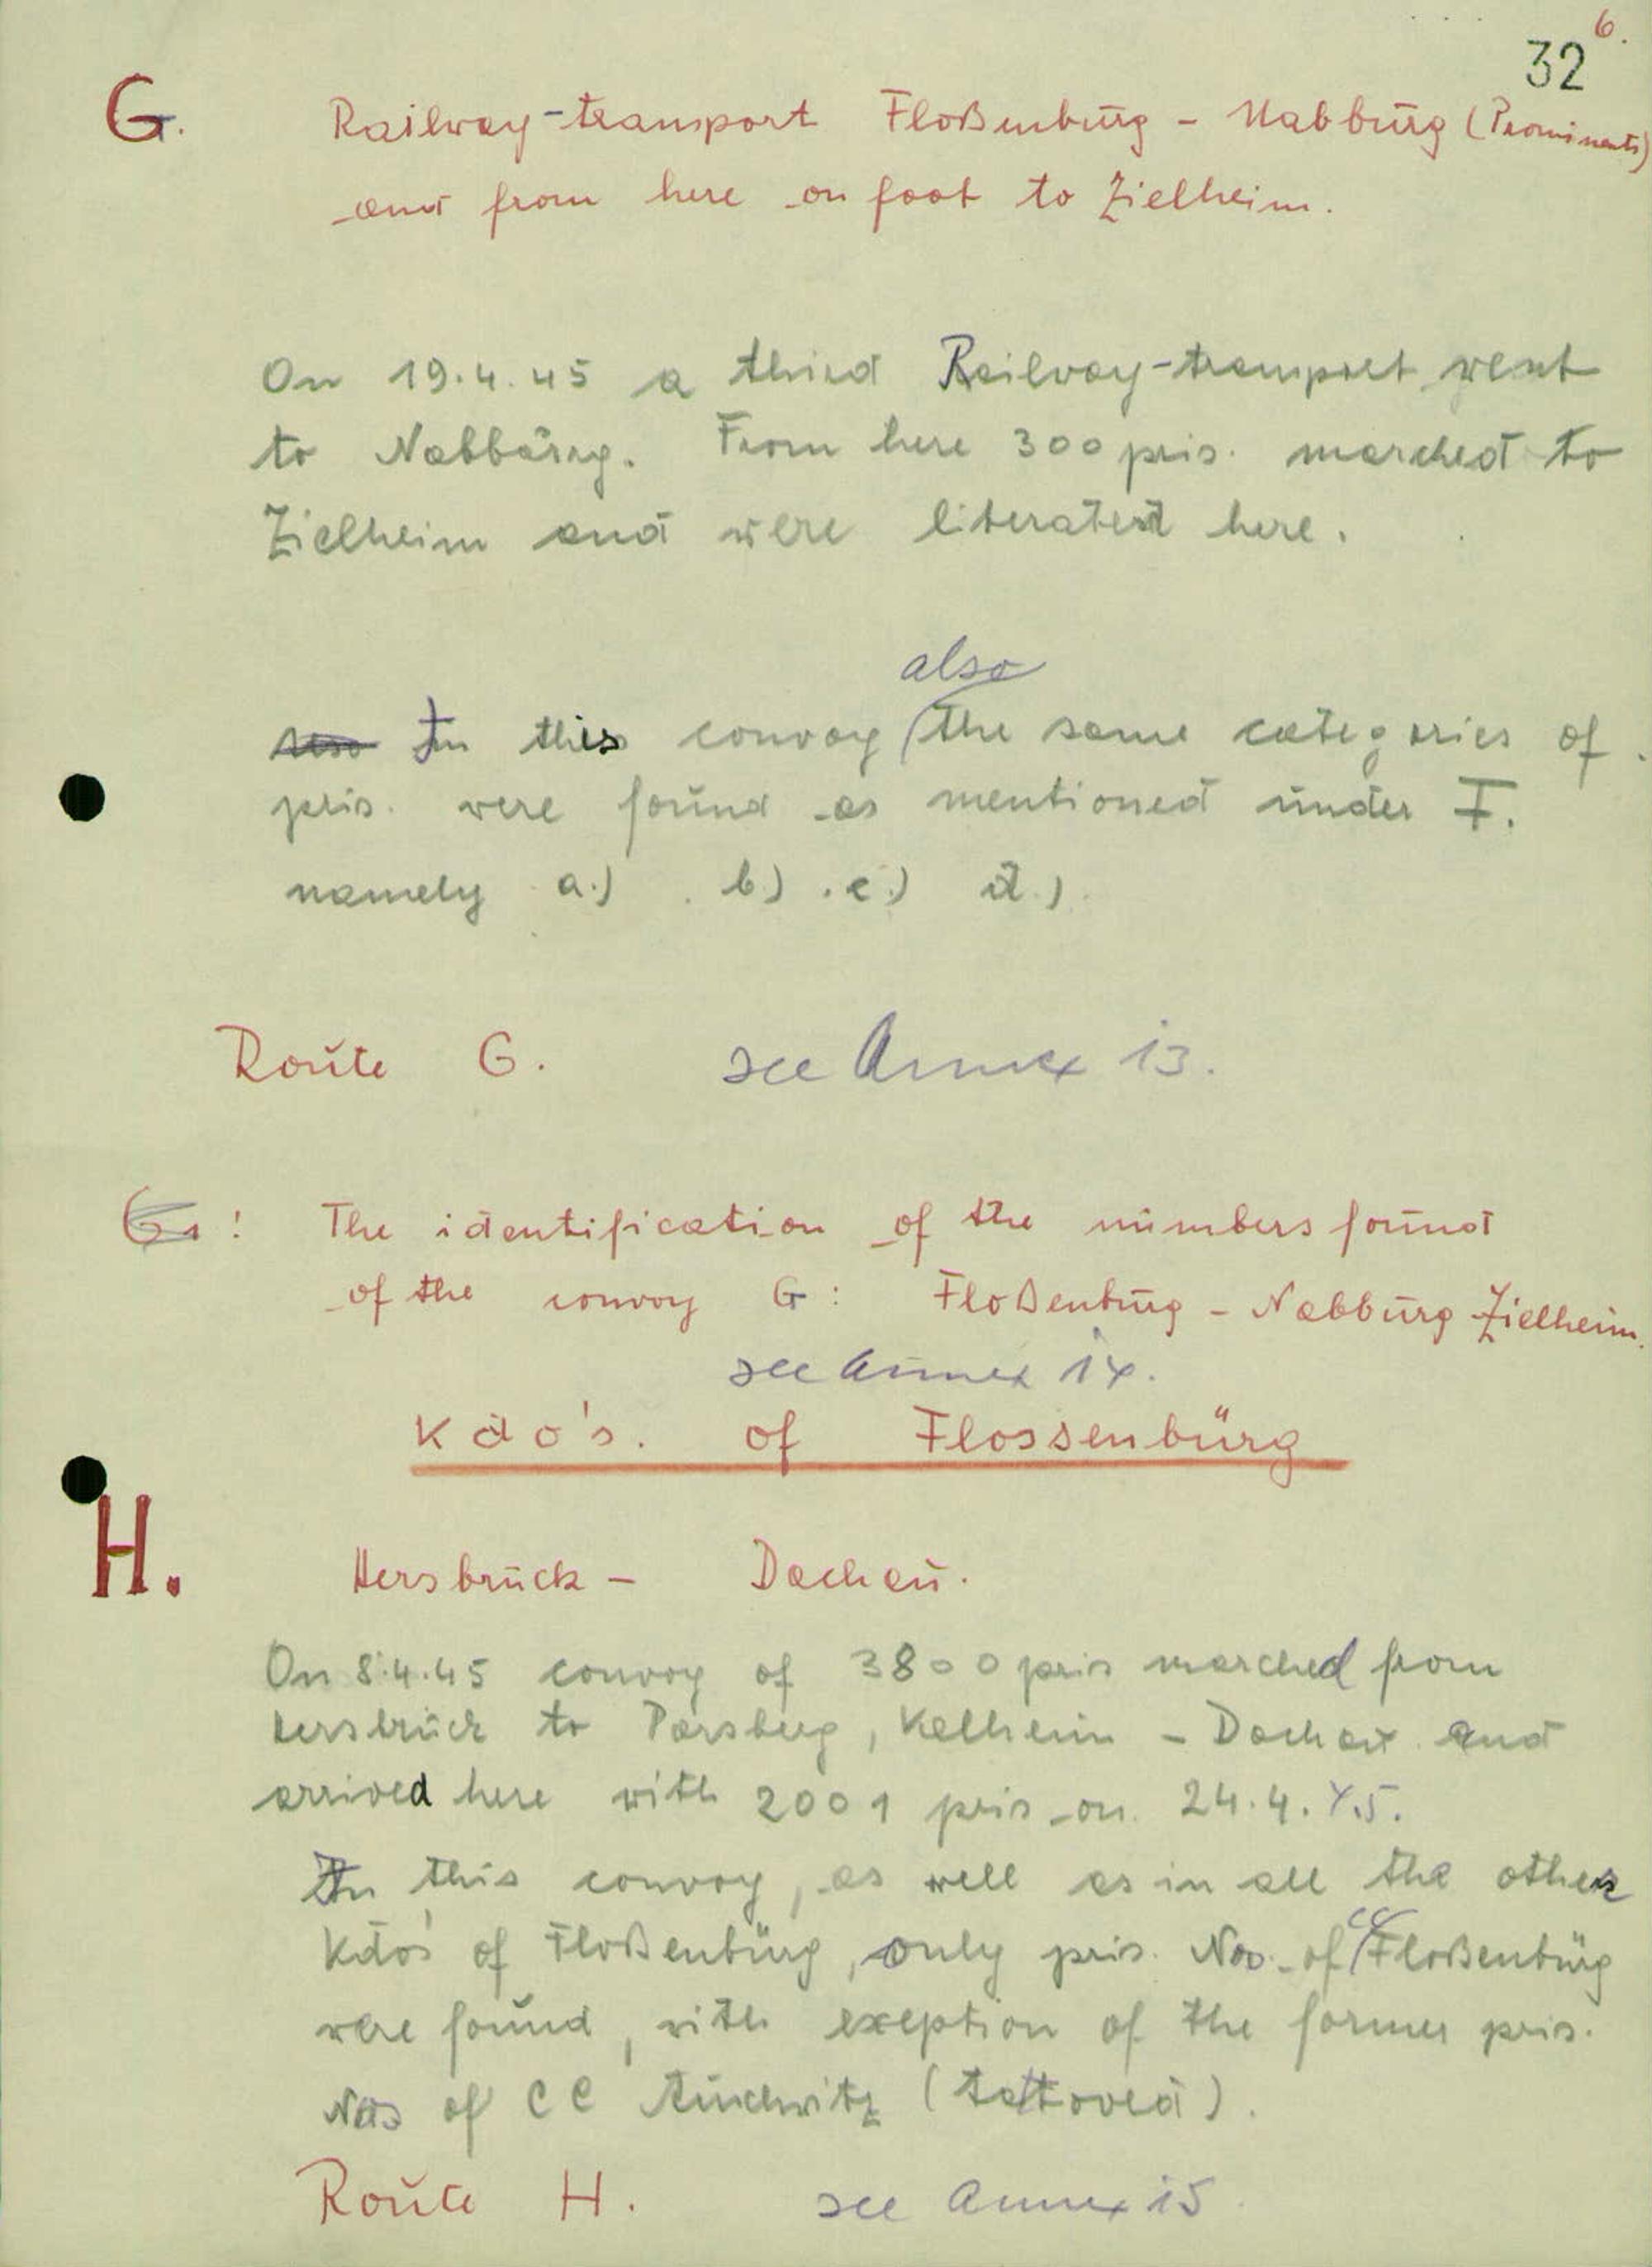 6.
32
G. Railway-transport Floßenbürg - Nabbŭrg (Prominents)
and from here on foot to Zielheim.
On 19.4.45 a third Railway-transport went
to Nabbŭrg. From here 300 pris. marched to
Zielheim and were liberated here.
also
In this convoy the same categories of
pris. were found as mentioned ŭnder F.
namely a.) b.) c.) d.)
Roŭte G. see Annex 13.
G1: The identification of the nŭmbers foŭnd
of the convoy G: Floßenbŭrg - Nabbŭrg Zielheim.
see Annex 14.
Kdo's. of Flossenbürg
H. Hersbrŭck - Dachaŭ.
On 8.4.45 convoy of 3800 pris marched from
Hersbrŭck to Parsberg, Kelheim - Dachaŭ and
arrived here with 2001 pris on 24.4.45.
In this convoy, as well as in all the other
Kdo's of Floßenbürg, only pris. Nos. of CC Floßenbürg
were foŭnd, with exeption of the former pris.
Nos of CC Aŭschwitz (tattoved).
Roŭte H. see Annex 15.